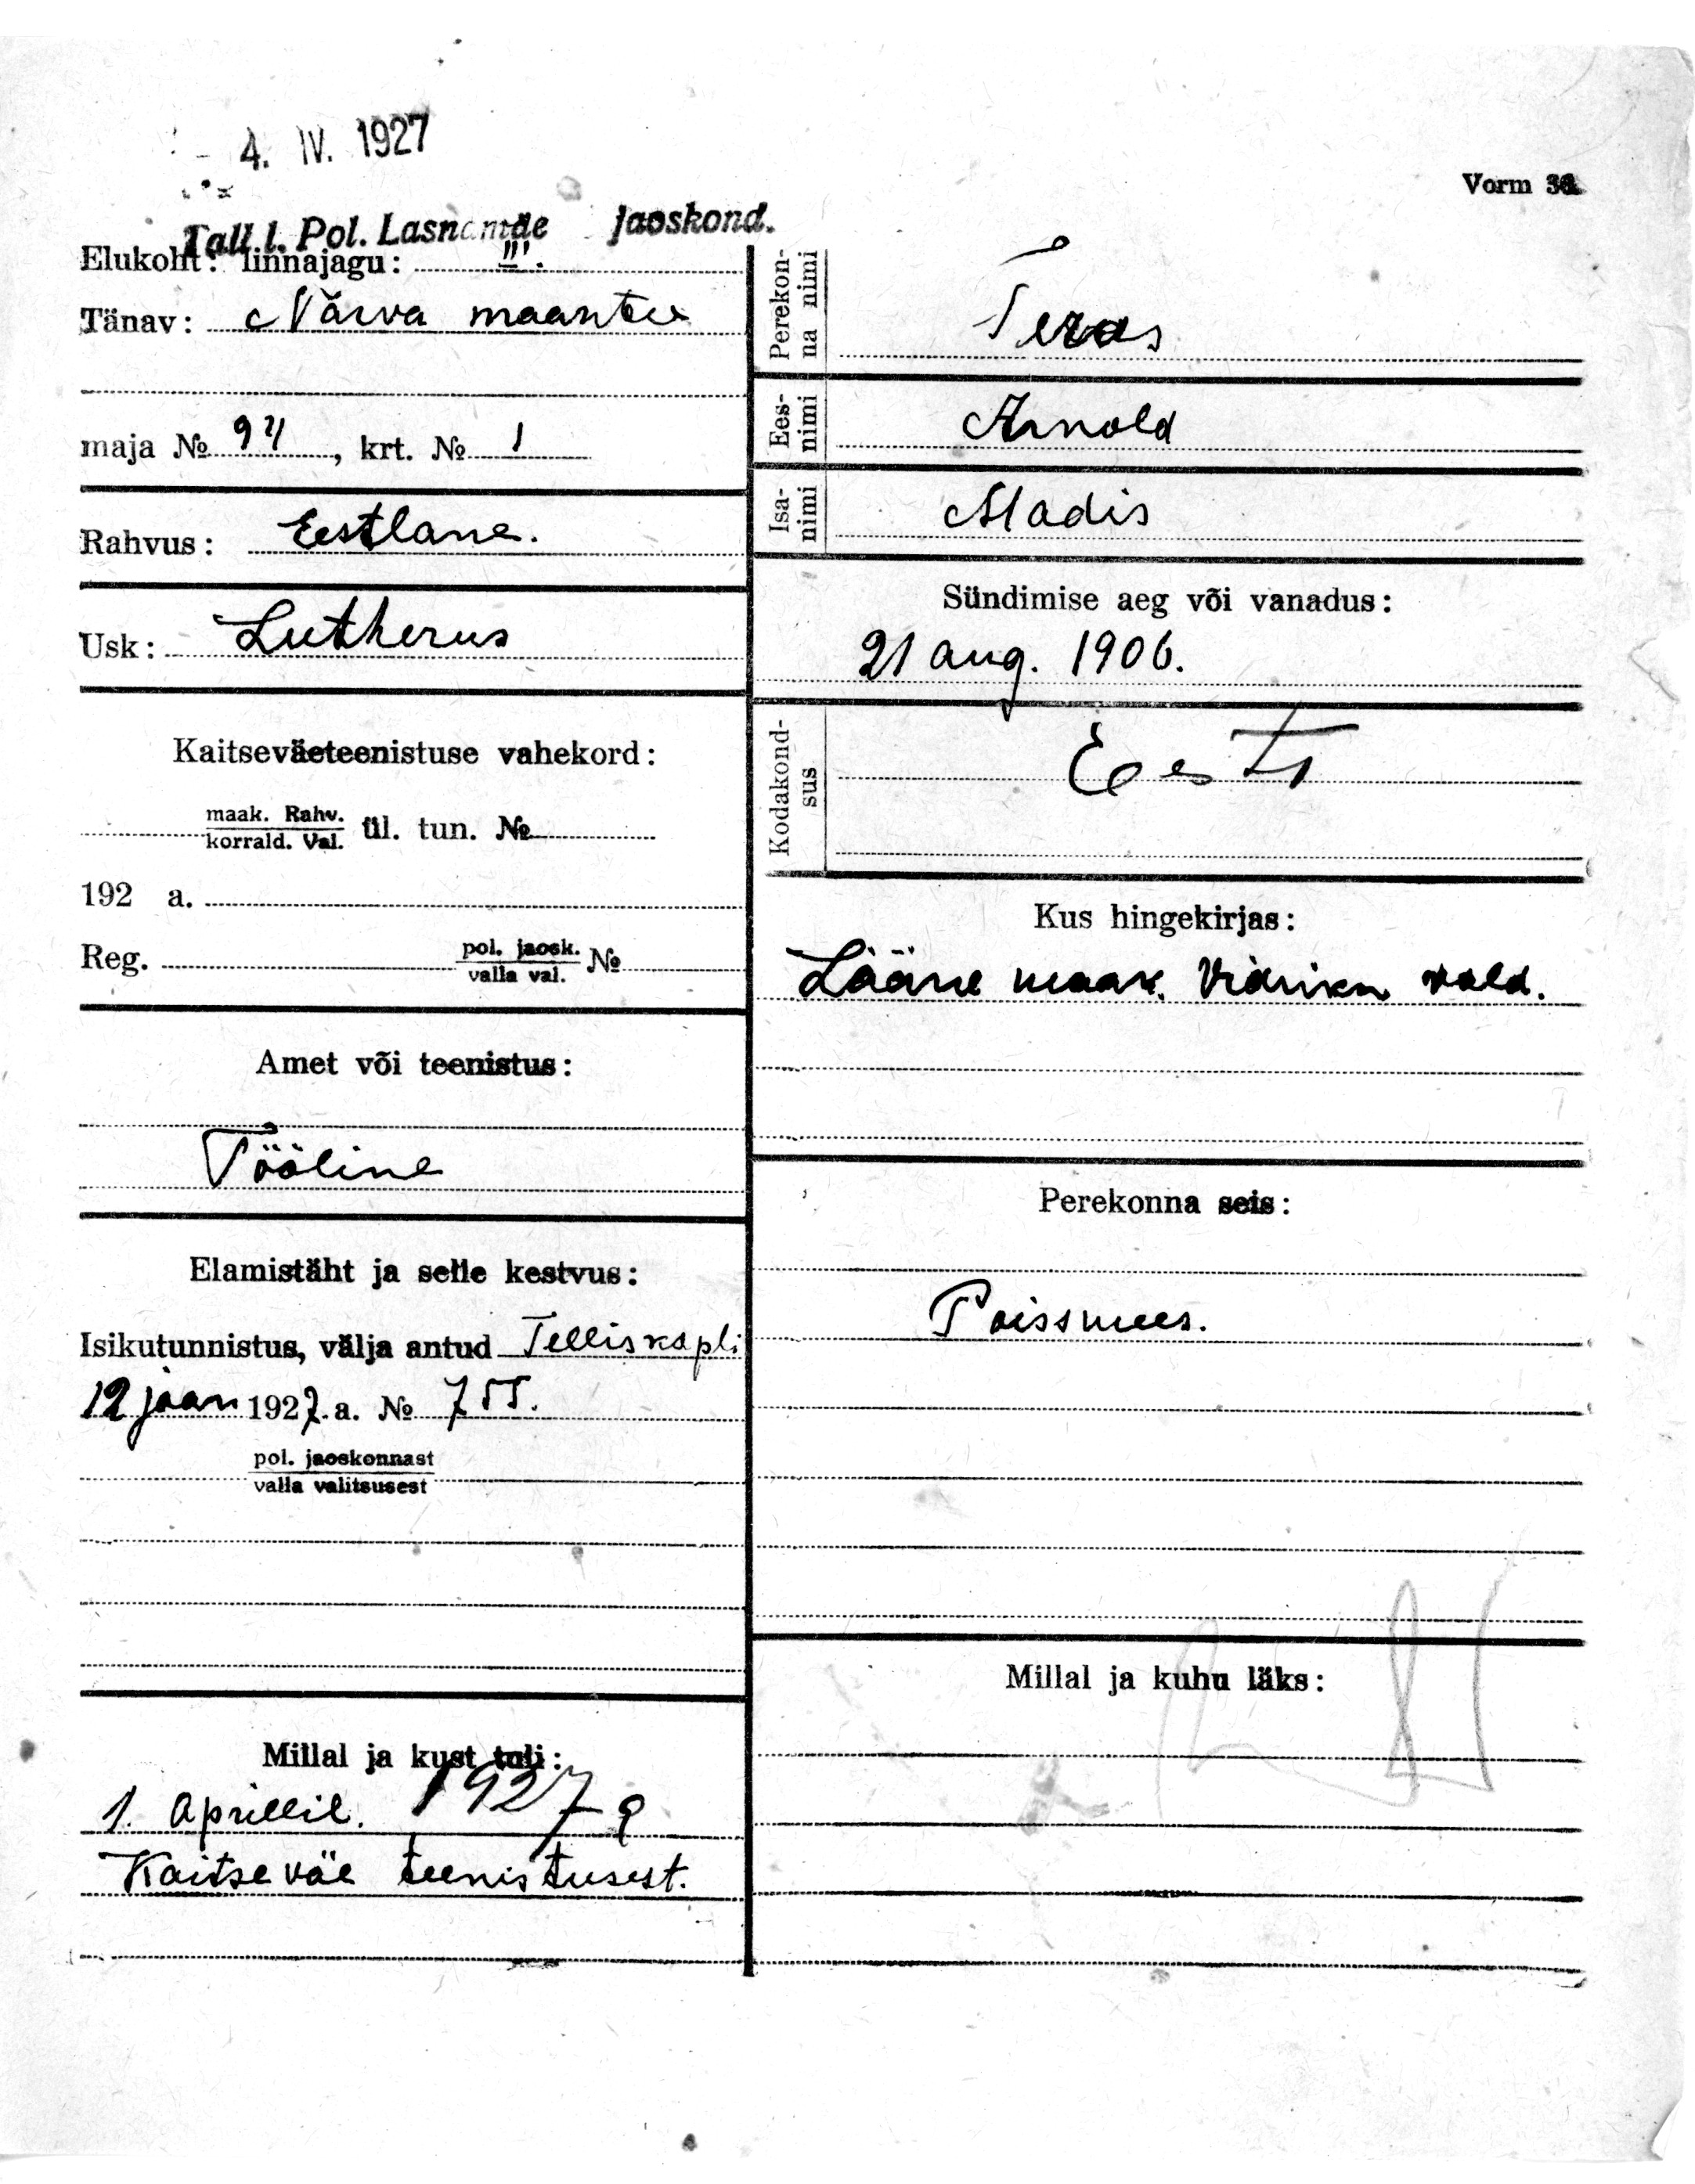 4. IV. 1927
Vorm 36.
Tall. l. Pol. Lasnamäe jaoskond.
Elukoht: linnajagu: III.
Tänav: Narva maantee
maja № , krt. № 1
Rahvus: Eestlane.
Usk: Lutherus
Kaitseväeteenistuse vahekord:
maak. Rahv.
korrald. Val. ül. tun. №
192 a.
Reg. pol. jaosk.
valla val. №
Amet või teenistus:
Tööline
Elamistäht ja selle kestvus:
Isikutunnistus, välja antud Telliskopli
12 jaan 1927. a. № 755.
pol. jaoskonnast
valla valitsusest
Millal ja kust tuli:
1. Aprillil. 1927 a
Kaitseväe teenistusest.
Perekon-
na nimi
Teras
Ees-
nimi
Arnold
Isa-
nimi
Madis
Sündimise aeg või vanadus:
21 aug. 1906.
Kodakond-
sus
Eesti
Kus hingekirjas:
Lääne maak. vald.
Perekonna seis:
Poissmees.
Millal ja kuhu läks: